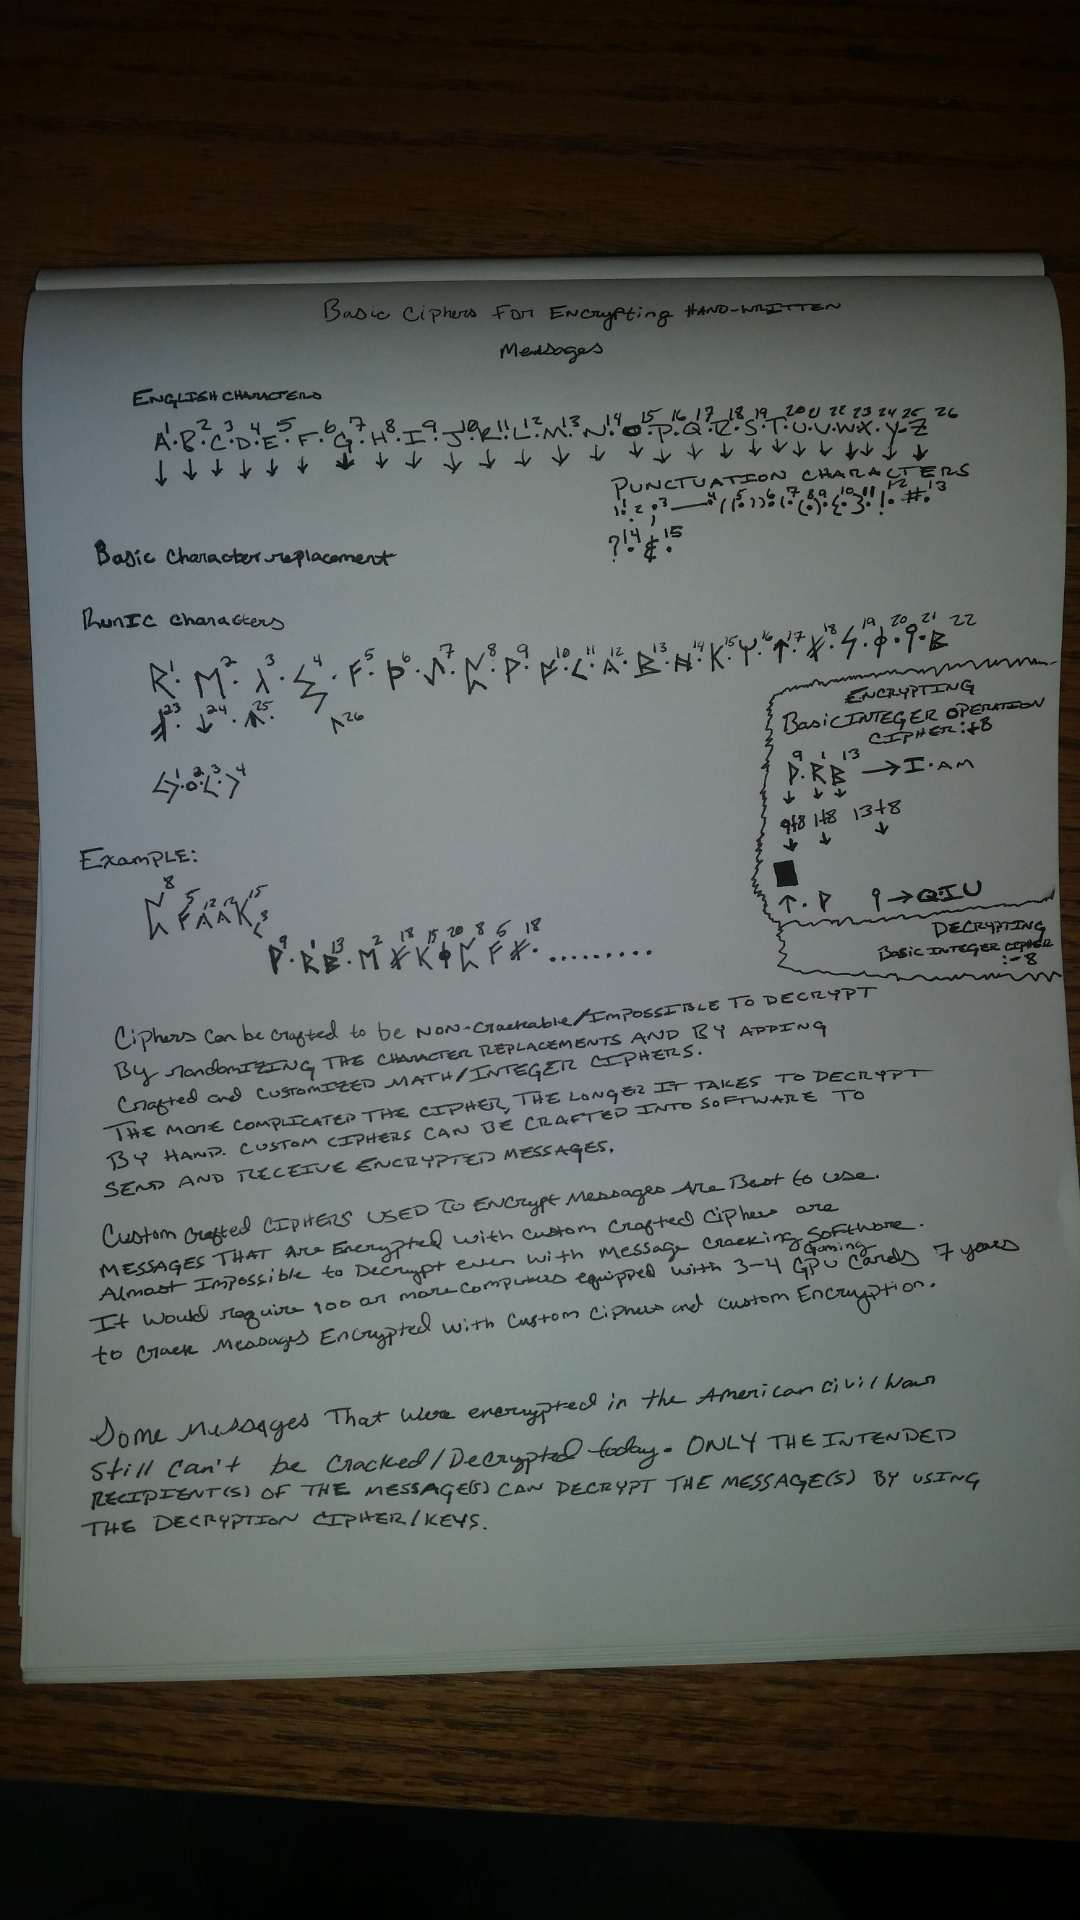 Basic Ciphers For Encrypting HAND-WRITTEN
Messages
ENGLISH CHARACTERS
A·1 B·2 C·3 D·4 E·5 F·6 G·7 H·8 I·9 J·10 K·11 L·12 M·13 N·14 O·15 P·16 Q·17 R·18 S·19 T·20 U·21 V·22 W·23 X·24 Y·25 Z 26
↓ ↓ ↓ ↓ ↓ ↓ ↓ ↓ ↓ ↓ ↓ ↓ ↓ ↓ ↓ ↓ ↓ ↓ ↓ ↓ ↓ ↓ ↓ ↓ ↓ ↓
PUNCTUATION CHARACTERS
?·14 &·15
Basic Character replacement
RunIC Characters
ᚱ·1 ᛖ·2 ᛋ·4 ᚦ·6 ᛈ·8 ᚲ·11 ᛒ·13 K·15 ᛉ·16 ↑·17
23 ↓·24 25 26
<>·1 o·2 <·3 >4
ENCRYPTING
Basic INTEGER OPERATION
CIPHER: +8
9 1 13
→ I·AM
↓ ↓ ↓
9+8 1+8 13+8
↓ ↓ ↓
→ Q·IU
DECRYPTING
Basic INTEGER CIPHER
: -8
Example:
8 5 12 12 15 3
9 1 13 2 18 15 20 8 5 18 .........
Ciphers can be crafted to be NON-Crackable/IMPOSSIBLE TO DECRYPT
By randomIZING THE CHARACTER REPLACEMENTS AND BY ADDING
Crafted and CUSTOMIZED MATH/INTEGER CIPHERS.
THE MORE COMPLICATED THE CIPHER, THE LONGER IT TAKES TO DECRYPT
BY HAND. CUSTOM CIPHERS CAN BE CRAFTED INTO SOFTWARE TO
SEND AND RECEIVE ENCRYPTED MESSAGES.
Custom Crafted CIPHERS USED TO ENCRYPT Messages Are Best to use.
MESSAGES THAT Are Encrypted with custom Crafted Ciphers are
Almost Impossible to Decrypt even with Message cracking Software.
It Would require 100 or more computers equipped with 3-4 Gaming GPU Cards 7 years
to Crack Messages Encrypted with Custom Ciphers and custom Encryption.
Some Messages That Were encrypted in the American Civil War
Still Can't be Cracked/Decrypted today. ONLY THE INTENDED
RECIPIENT(S) OF THE MESSAGE(S) CAN DECRYPT THE MESSAGE(S) BY USING
THE DECRYPTION CIPHER/KEYS.